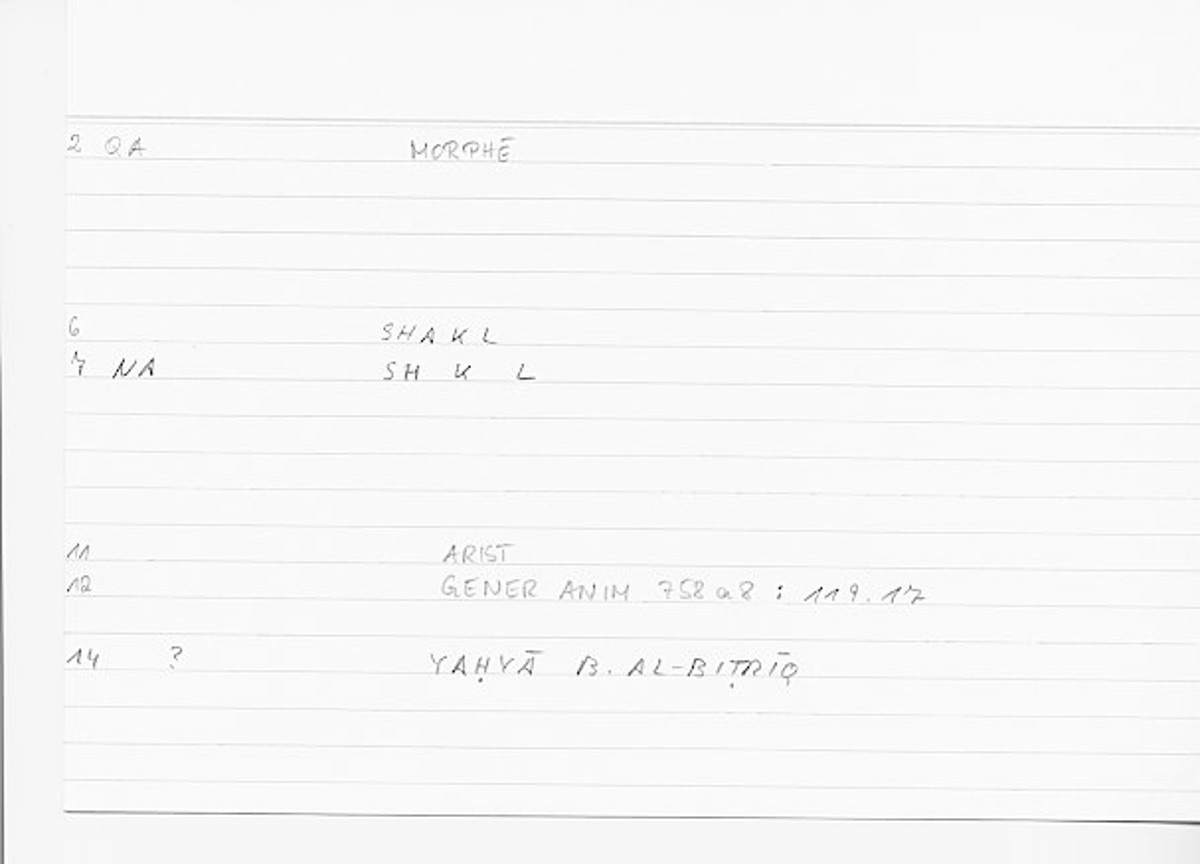 2 QA MORPHĒ
6 SHAKL
7 NA SH K L
11 ARIST
12 GENER ANIM 758a8 : 119.17
14 ? YAḤYĀ B. AL-BIṬRĪQ